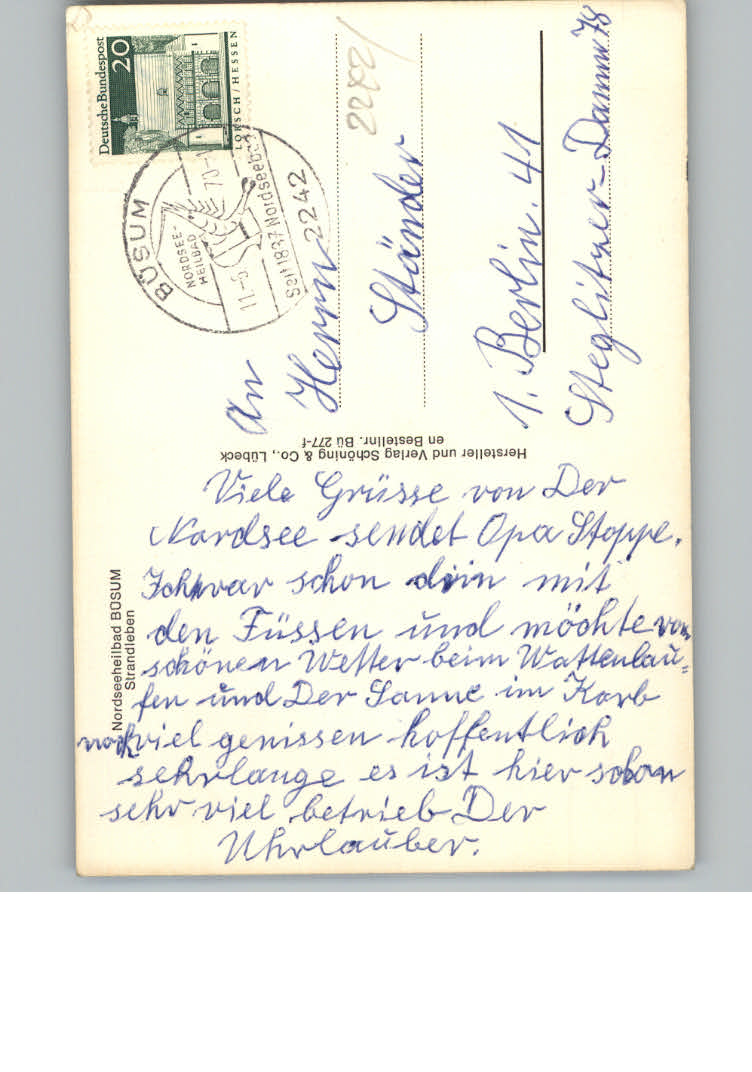 Deutsche Bundespost
20
LORSCH/HESSEN
BÜSUM
NORDSEE-
HEILBAD
2242
An
Herrn
Ständer
1. Berlin. 41
Steglitzer-Damm 78
Hersteller und Verlag Schöning & Co., Lübeck
en Bestellnr. Bü 277-f
Nordseeheilbad BÜSUM
Strandleben
Viele Grüsse von Der
Nordsee sendet Opa Stoppe.
Ich war schon drin mit
den Füssen und möchte vom
schönen Wetter beim Wattenlau=
fen und Der Sonne im Korb
noch viel genissen hoffentlich
sehr lange es ist hier schon
sehr viel betrieb Der
Uhrlauber.